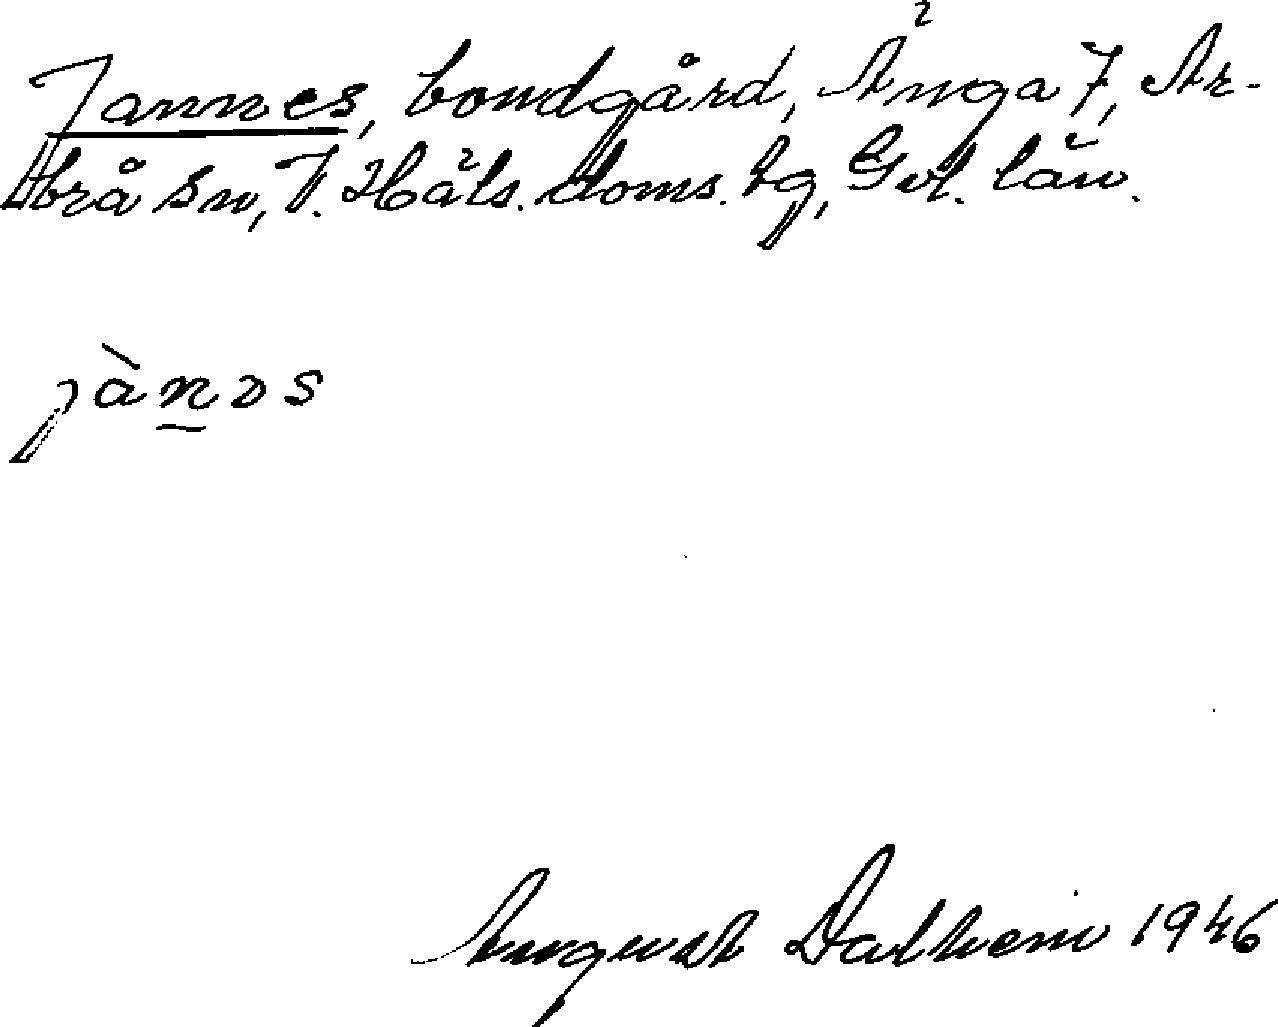 Jannes, bondgård, Änga 7, Ar-
brå sn, V. Häls. doms. tg, Gvl. län.
jànəs
August Dalhem 1946